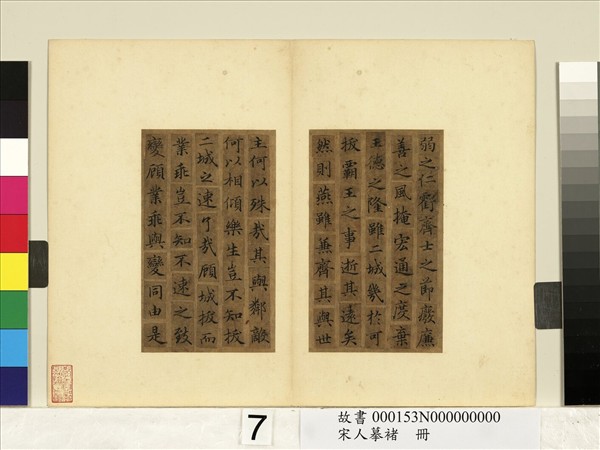 弱之仁虧齊士之節廢廉
善之風掩宏通之度棄
王德之隆雖二城幾於可
拔霸王之事逝其遠矣
然則燕雖無齊其與世
主何以殊哉其與鄰敵
何以相傾樂生豈不知拔
二城之速了哉顧城拔而
業乖豈不知不速之致
變顧業乖與變同由是
7
故書 000153N000000000
宋人摹褚　冊